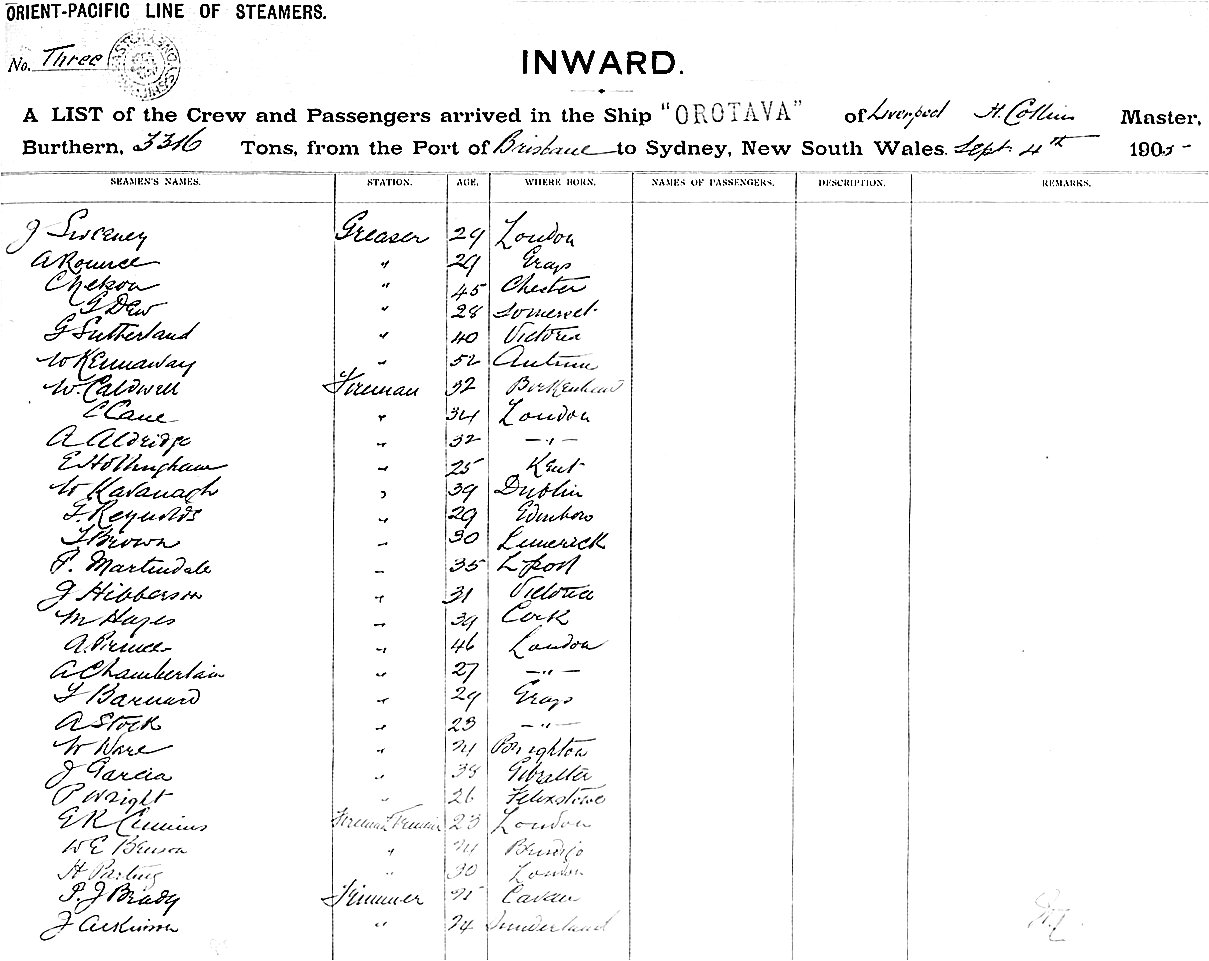 ORIENT-PACIFIC LINE OF STEAMERS.
No. Three
INWARD.
A LIST of the Crew and Passengers arrived in the Ship "OROTAVA" of Liverpool H. Collins Master,
Burthern, 3316 Tons, from the Port of Brisbane to Sydney, New South Wales. Sept. 4th 1905
SEAMEN'S NAMES. STATION. AGE. WHERE BORN. NAMES OF PASSENGERS. DESCRIPTION. REMARKS.
J Sweeney Greaser 29 London
A Rource " 29 Grays
C Nelson " 45 Chester
G Dew " 28 Somerset
G Sutherland " 40 Victoria
W Kennaway " 52 Antrim
W. Caldwell Fireman 32 Birkenhead
C Cane " 34 London
A Aldridge " 32 — " —
E Hollingham " 25 Kent
W Kavanagh " 39 Dublin
F. Reynolds " 29 Edinboro
J Brown " 30 Limerick
P. Martindale " 35 L'pool
J Hibberson " 31 Victoria
M Hayes " 39 Cork
A. Prince " 46 London
A Chamberlain " 27 — " —
F Barnard " 29 Grays
A Stock " 23 — " —
W Ware " 21 Brighton
J Garcia " 38 Gibralter
P Wright " 26 Felixstowe
E R Cummins Fireman & Trimmer 23 London
W E Benson " 24 Bendigo
H Parting " 30 London
P. J Brady Trimmer 25 Cavan
J Atkinson " 24 Sunderland